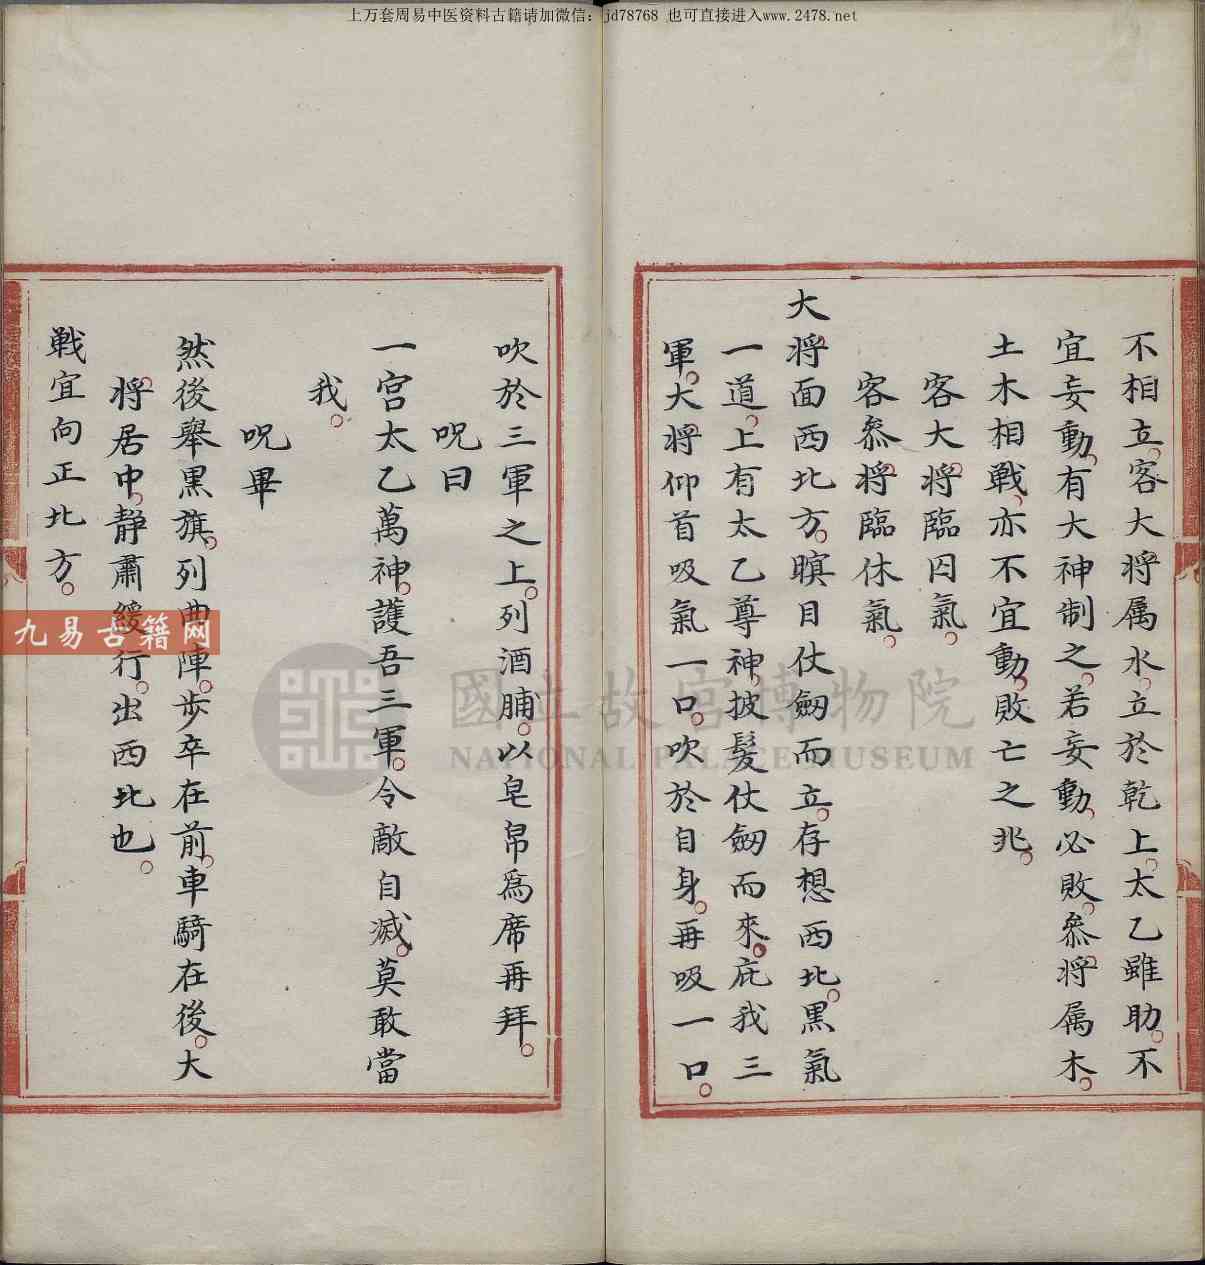 上万套周易中医资料古籍请加微信：jd78768 也可直接进入www.2478.net
不相立。客大将属水。立於乾上。太乙雖助。不
宜妄動。有大神制之。若妄動。必敗。叅将属木。
土木相戰。亦不宜動。敗亡之兆。
客大将臨囚氣。
客叅将臨休氣。
大将面西北方。瞑目仗劒而立。存想西北。黒氣
一道。上有太乙尊神。披髮仗劒而來。庇我三
軍。大将仰首吸氣一口。吹於自身。再吸一口。
吹於三軍之上。列酒脯。以皂帛爲席再拜。
呪曰
一宫太乙萬神。護吾三軍。令敵自滅。莫敢當
我。
呪畢
然後舉黒旗。列曲陣。步卒在前。車騎在後。大
将居中。静肅緩行。出西北也。
戰宜向正北方。
九易古籍网
國立故宮博物院
NATIONAL PALACE MUSEUM